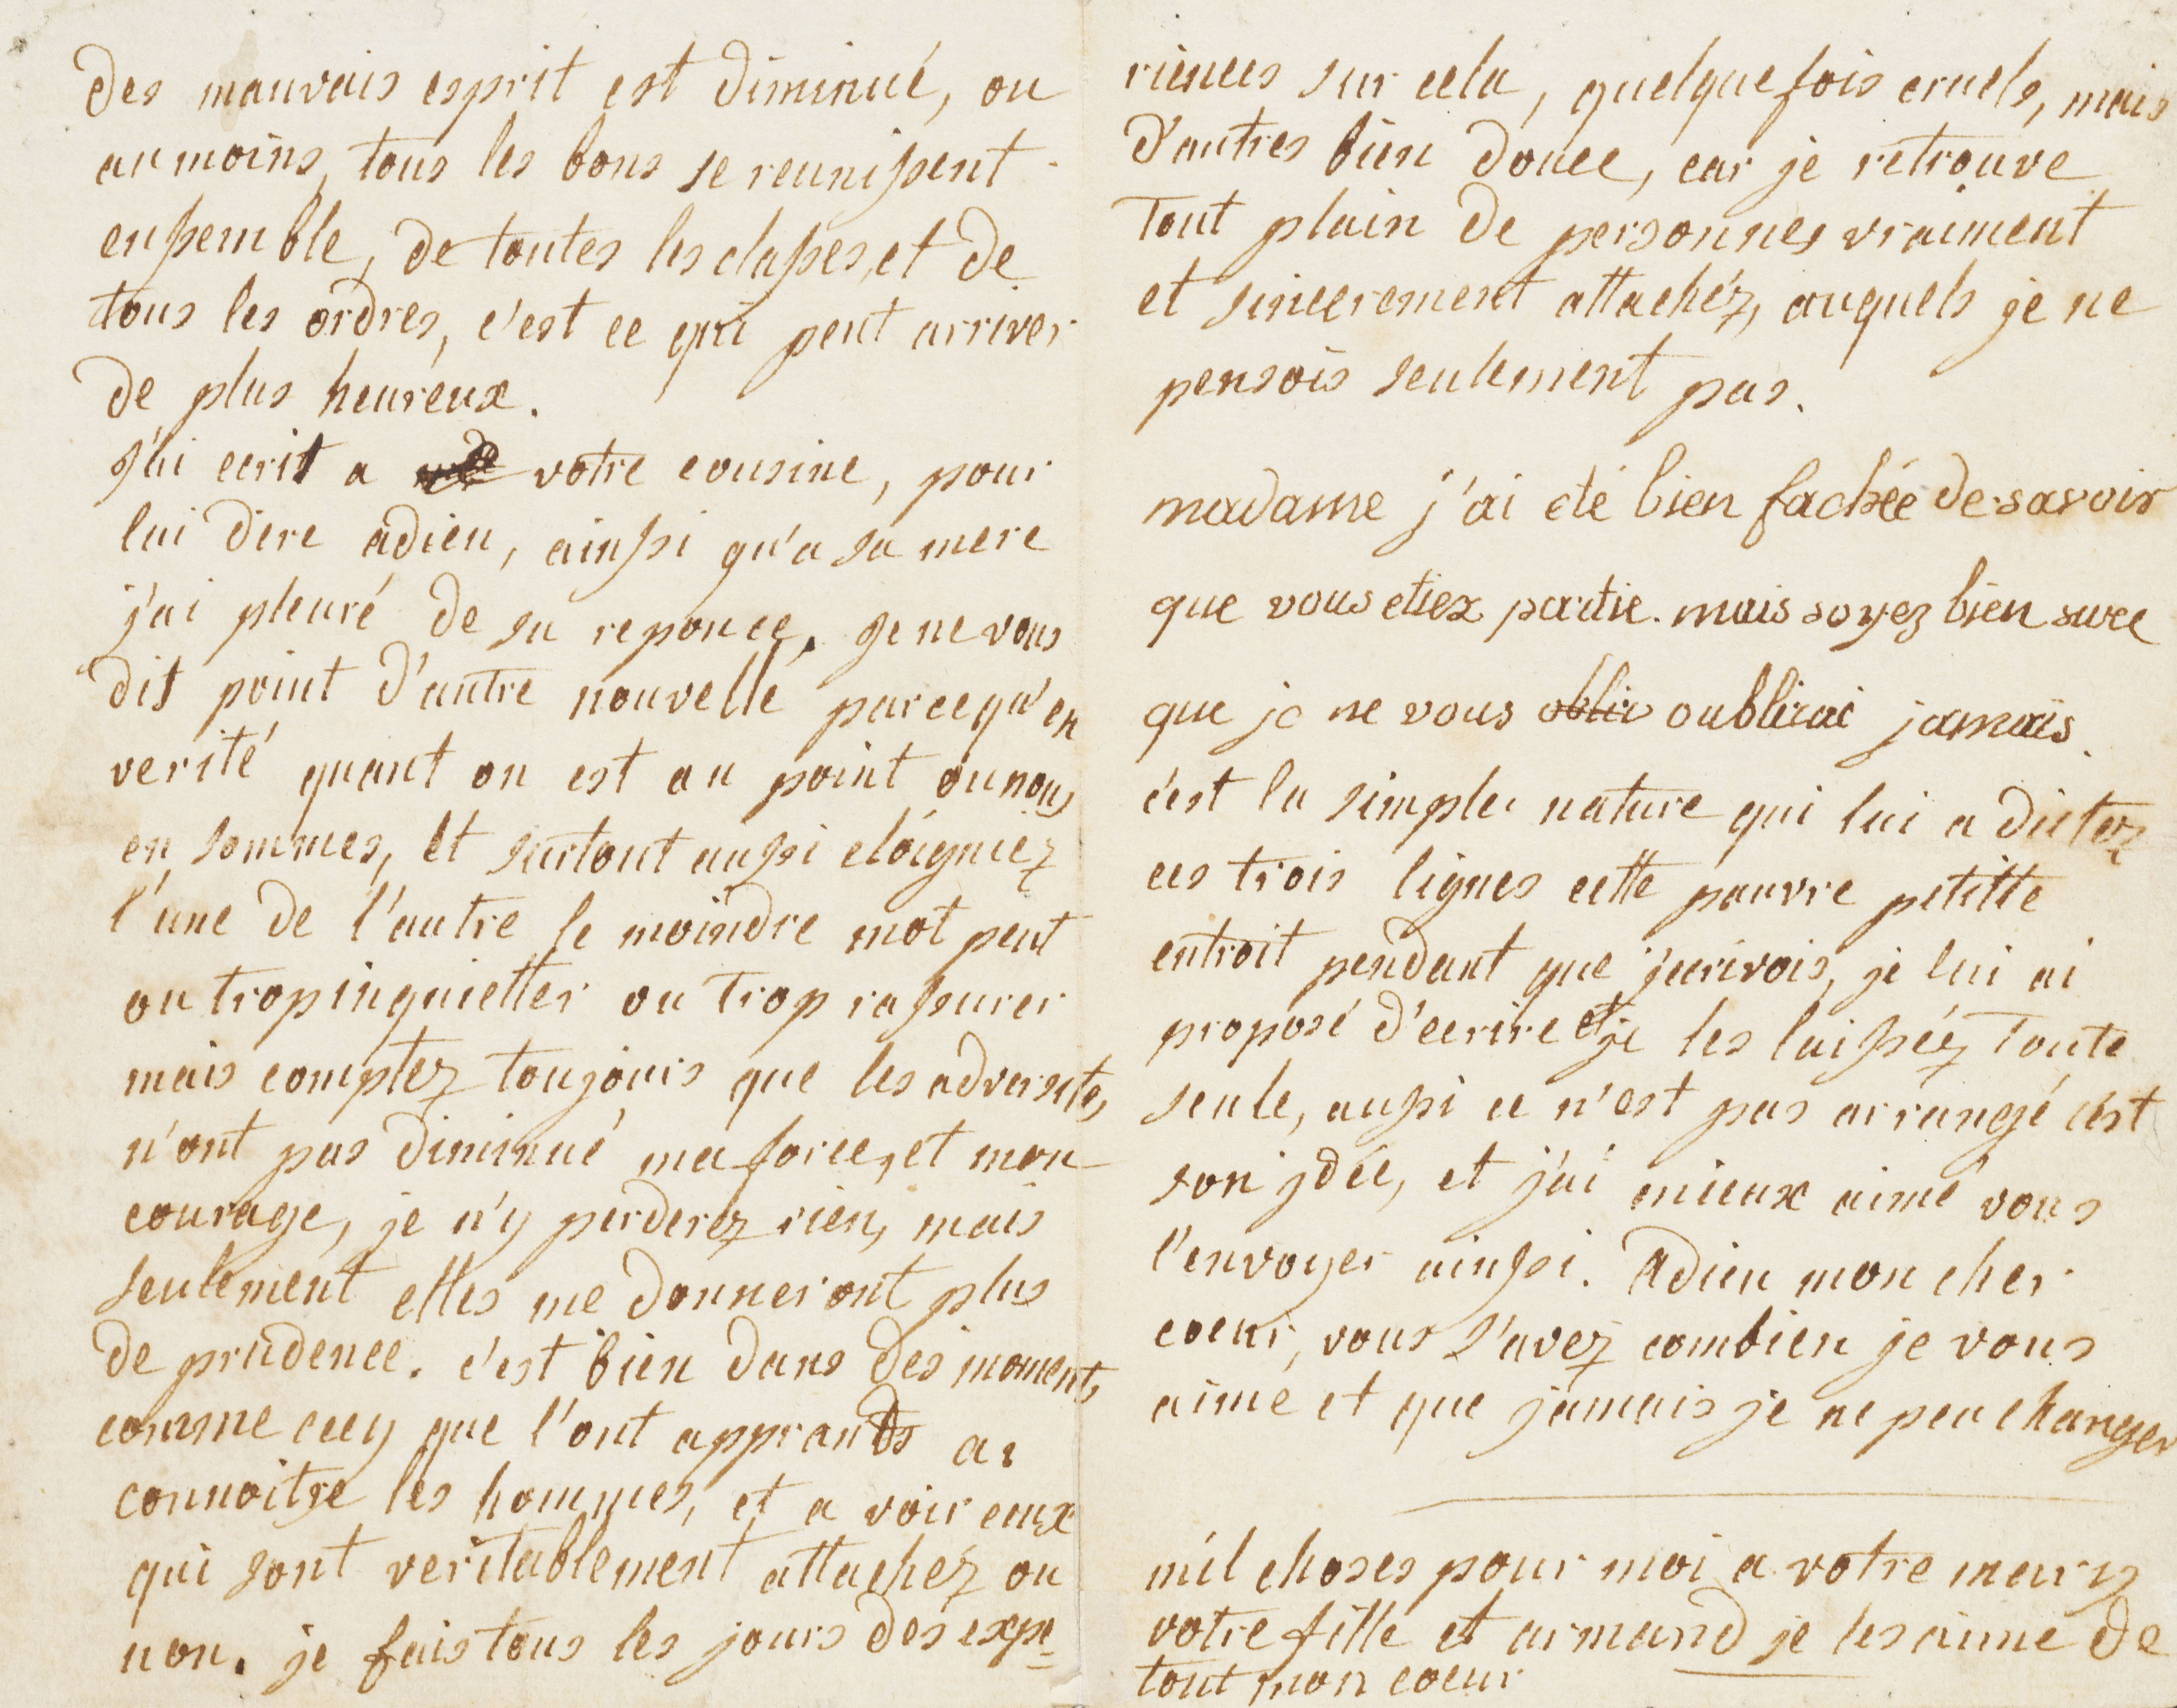 des mauvais esprit est diminué, ou
aumoins, tous les bons se reunissent
ensemble, de toutes les classes, et de
tous les ordres, c'est ce qui peut arriver
de plus heureux.
j'ai ecrit a votre cousine, pour
lui dire adieu, ainssi qu'a sa mere
j'ai pleuré de sa reponce. je ne vous
dit point d'autre nouvelle parcequ'en
verité quant on est au point ou nous
en sommes, et surtout aussi eloigniez
l'une de l'autre le moindre mot peut
ou trop inquietter ou trop rassurer
mais comptez toujours que les adversités
n'ont pas diminué ma force, et mon
courage, je n'y perderez rien, mais
seulement elles me donneront plus
de prudence. c'est bien dans des moments
comme cecy que l'ont apprands a
connoitre les hommes, et a voir ceux
qui sont veritablement attachez ou
non. je fais tous les jours des expe=
riences sur cela, quelquefois cruels, mais
d'autres bien douce, car je retrouve
Tout plain de personnes vraiment
et sincerement attachéz, auquels je ne
pensois seulement pas.
madame j'ai eté bien fachée de savoir
que vous etiex partie. mais soyez bien sure
que je ne vous oblir oublirai jamais.
c'est la simple nature qui lui a dictez
ces trois lignes cette pauvre petitte
entroit pendant que j'ecrivois, je lui ai
proposé d'ecrire et je les laisséz Toute
seule, aussi ce n'est pas arrangé c'est
son jdée, et j'ai mieux aimé vous
l'envoyer ainssi. Adieu mon cher
coeur, vous s'avez combien je vous
aime et que jamais je ne peu changer
mil choses pour moi a votre mary
votre fille et armand je les aime de
tout mon coeur